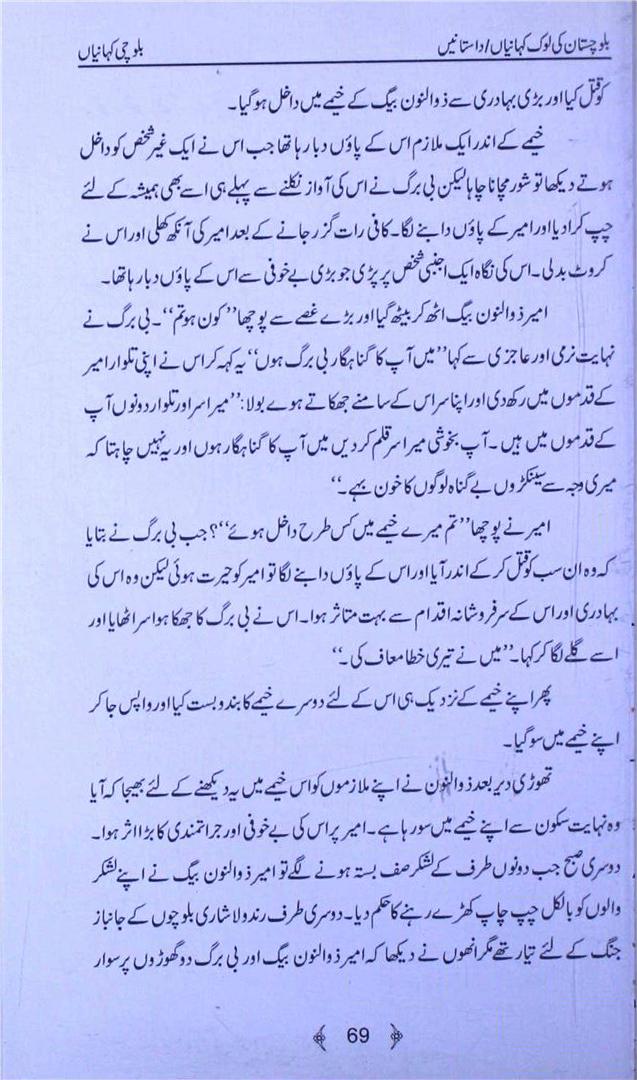 بلوچستان کی لوک کہانیاں/داستانیں
بلوچی کہانیاں
کو قتل کیا اور بڑی بہادری سے ذوالنون بیگ کے خیمے میں داخل ہو گیا۔
خیمے کے اندر ایک ملازم اس کے پاؤں دبا رہا تھا جب اس نے ایک غیر شخص کو داخل
ہوتے دیکھا تو شور مچانا چاہا لیکن بی برگ نے اس کی آواز نکلنے سے پہلے ہی اسے بھی ہمیشہ کے لئے
چپ کرا دیا اور امیر کے پاؤں دابنے لگا۔ کافی رات گزر جانے کے بعد امیر کی آنکھ کھلی اور اس نے
کروٹ بدلی۔ اس کی نگاہ ایک اجنبی شخص پر پڑی جو بڑی بے خوفی سے اس کے پاؤں دبا رہا تھا۔
امیر ذوالنون بیگ اٹھ کر بیٹھ گیا اور بڑے غصے سے پوچھا ”کون ہو تم“۔ بی برگ نے
نہایت نرمی اور عاجزی سے کہا ”میں آپ کا گناہگار بی برگ ہوں“ یہ کہہ کر اس نے اپنی تلوار امیر
کے قدموں میں رکھ دی اور اپنا سر اس کے سامنے جھکاتے ہوے بولا: ”میرا سر اور تلوار دونوں آپ
کے قدموں میں ہیں۔ آپ بخوشی میرا سر قلم کر دیں میں آپ کا گناہگار ہوں اور یہ نہیں چاہتا کہ
میری وجہ سے سینکڑوں بے گناہ لوگوں کا خون بہے۔“
امیر نے پوچھا ”تم میرے خیمے میں کس طرح داخل ہوئے“؟ جب بی برگ نے بتایا
کہ وہ ان سب کو قتل کر کے اندر آیا اور اس کے پاؤں دابنے لگا تو امیر کو حیرت ہوئی لیکن وہ اس کی
بہادری اور اس کے سرفروشانہ اقدام سے بہت متاثر ہوا۔ اس نے بی برگ کا جھکا ہوا سر اٹھایا اور
اسے گلے لگا کر کہا۔ ”میں نے تیری خطا معاف کی۔“
پھر اپنے خیمے کے نزدیک ہی اس کے لئے دوسرے خیمے کا بندوبست کیا اور واپس جا کر
اپنے خیمے میں سو گیا۔
تھوڑی دیر بعد ذوالنون نے اپنے ملازموں کو اس خیمے میں یہ دیکھنے کے لئے بھیجا کہ آیا
وہ نہایت سکون سے اپنے خیمے میں سو رہا ہے۔ امیر پر اس کی بے خوفی اور جراتمندی کا بڑا اثر ہوا۔
دوسری صبح جب دونوں طرف کے لشکر صف بستہ ہونے لگے تو امیر ذوالنون بیگ نے اپنے لشکر
والوں کو بالکل چپ چاپ کھڑے رہنے کا حکم دیا۔ دوسری طرف رند ولاشاری بلوچوں کے جانباز
جنگ کے لئے تیار تھے مگر انھوں نے دیکھا کہ امیر ذوالنون بیگ اور بی برگ دو گھوڑوں پر سوار
69